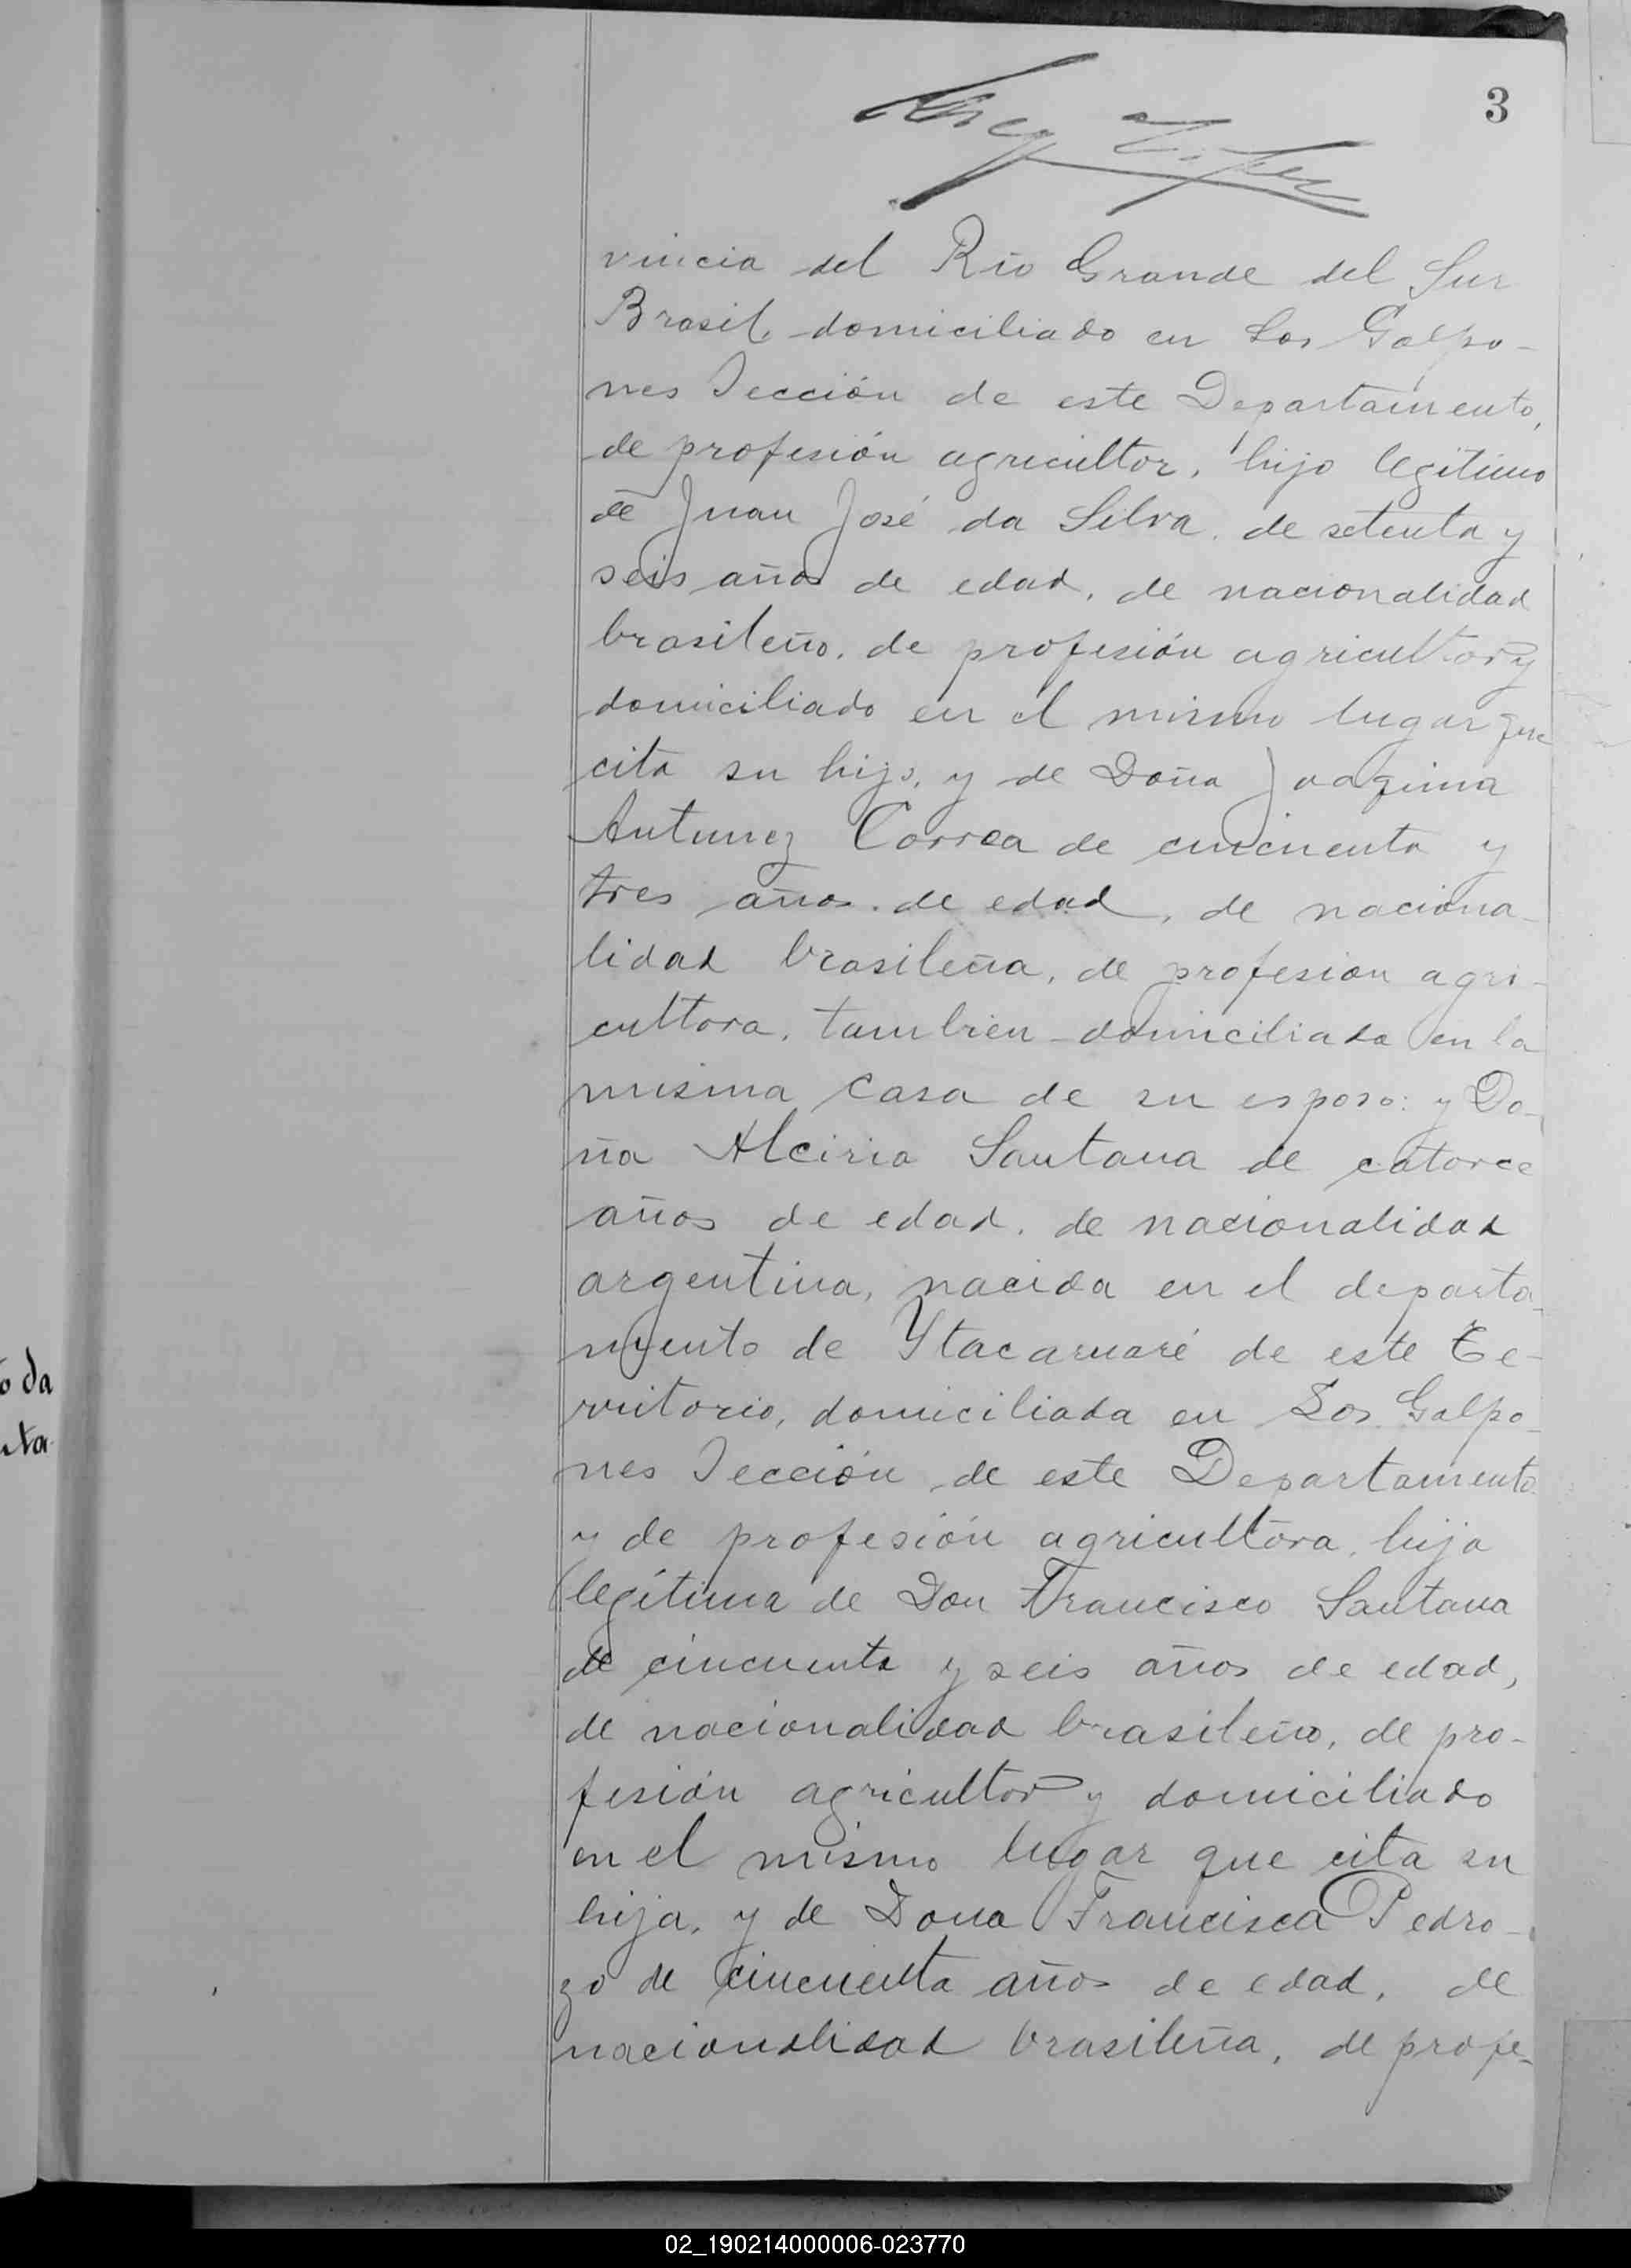 3
vincia del Río Grande del Sur
Brasil, domiciliado en Los Galpo-
nes Sección de este Departamento,
de profesión agricultor, hijo legítimo
de Juan José da Silva, de setenta y
seis años de edad, de nacionalidad
brasileño, de profesión agricultor y
domiciliado en el mismo lugar que
cita su hijo, y de Doña Joaquina
Antunez Correa de cincuenta y
tres años de edad, de naciona-
lidad brasileña, de profesion agri-
cultora, tambien domiciliada en la
misma casa de su esposo: y Do-
ña Alciria Santana de catorce
años de edad, de nacionalidad
argentina, nacida en el departa-
mento de Ytacaruaré de este Te-
rritorio, domiciliada en Los Galpo-
nes Sección de este Departamento
y de profesión agricultora, hija
legítima de Don Francisco Santana
de cincuenta y seis años de edad,
de nacionalidad brasileño, de pro-
fesión agricultor y domiciliado
en el mismo lugar que cita su
hija, y de Dona Francisca Pedro-
zo de cincuenta años de edad, de
nacionalidad brasileña, de profe-
o da
ta
02_190214000006-023770